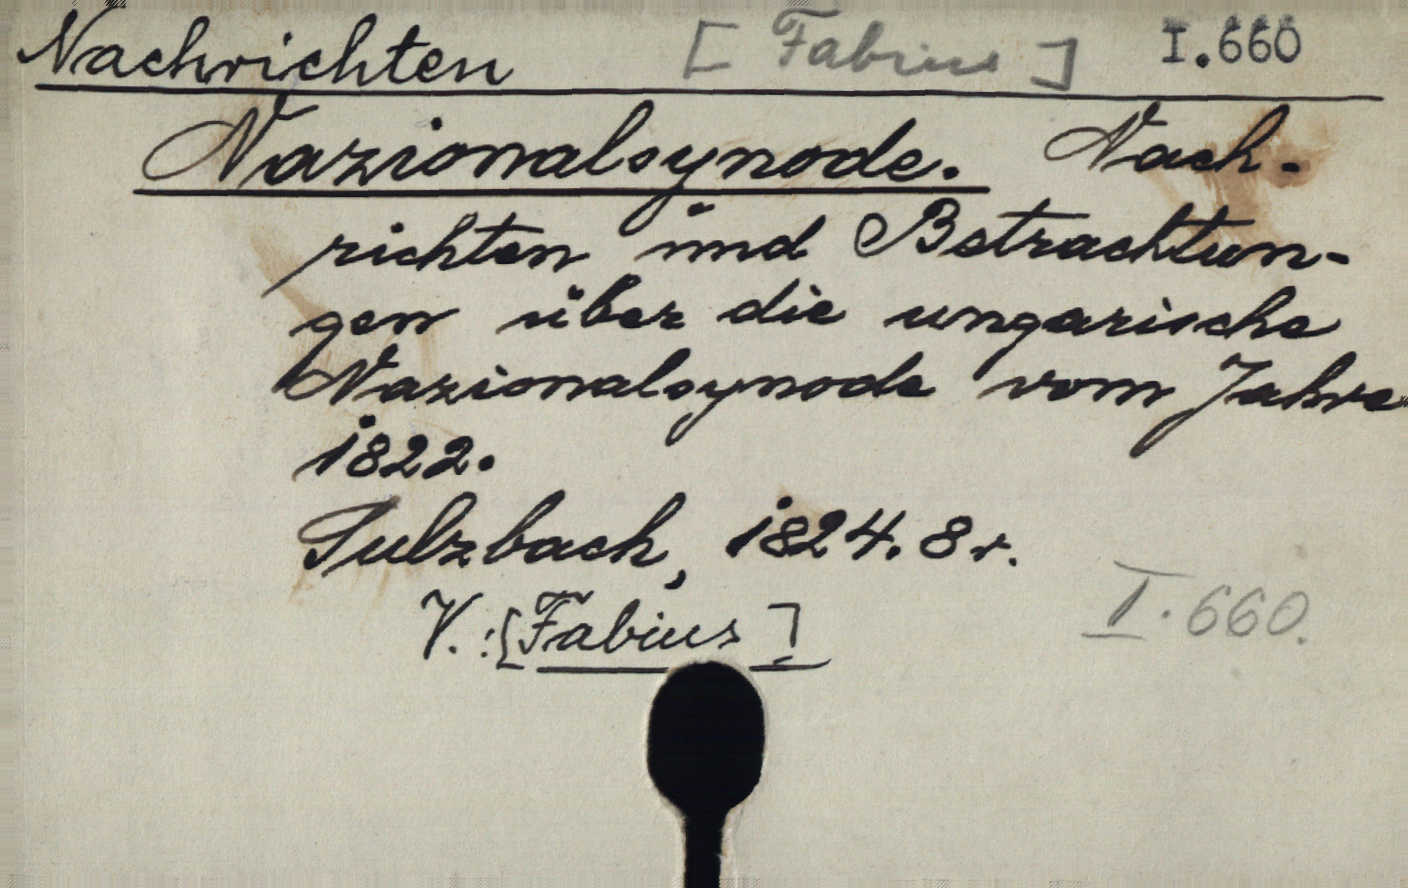 Nachrichten [Fabius] I.660
Nazionalsynode. Nach-
richten und Betrachtun-
gen über die ungarische
Nazionalsynode vom Jahre
1822.
Sulzbach, 1824. 8r.
V.: [Fabius]
I.660.